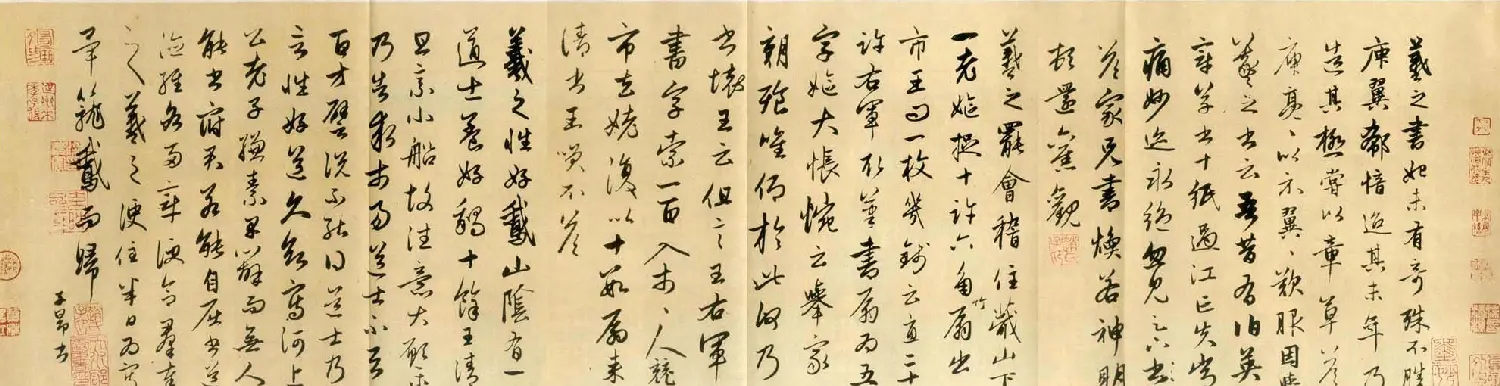 羲之書初未有奇殊不勝
庾翼郗愔迨其末年乃
造其極嘗以章草答
庾亮亮以示翼翼歎服因與
羲之書云吾昔有伯英
章草書十紙過江亡失常
痛妙迹永絕忽見足下書
答家兄書煥若神明
頓還舊觀
羲之罷會稽住蕺山下
一老嫗捉十許六角竹扇出
市王問一枚幾錢云直二十
許右軍取筆書扇為五
字嫗大悵惋云舉家
朝飡唯仰於此何乃
書壞王云但言王右軍
書字索一百入市市人競
市去姥復以十數扇來
請書王笑不答
羲之性好鵝山陰有一
道士養好鵝十餘王清
旦乘小船故往意大願樂
乃告求市易道士不與
百方譬說不能得道士乃
言性好道久欲寫河上
公老子縑素早辦而無人
能書府君若能自屈書道
德經各兩章便合群奉
羲之便住半日為寫
畢籠鵝而歸
子昂書